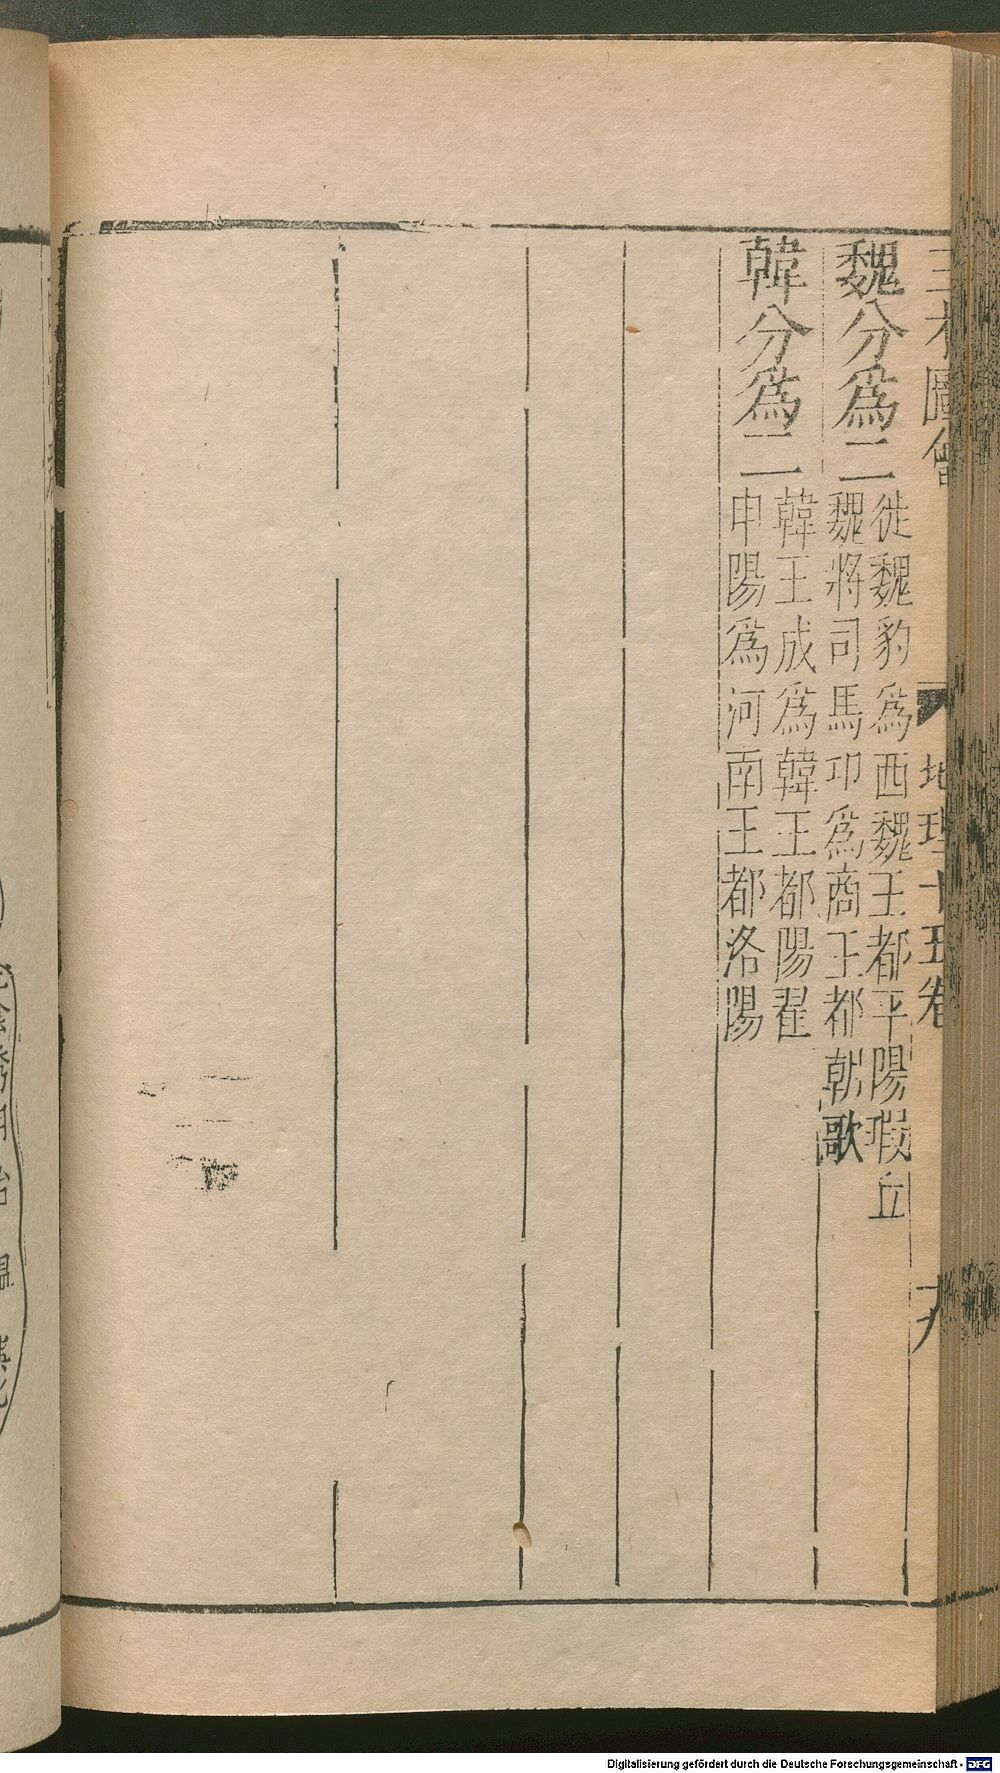 三才圖會
地理十五卷
九
魏分爲二
徙魏豹爲西魏王都平陽瑕丘
魏將司馬卬爲商王都朝歌
韓分爲二
韓王成爲韓王都陽翟
申陽爲河南王都洛陽
Digitalisierung gefördert durch die Deutsche Forschungsgemeinschaft - DFG